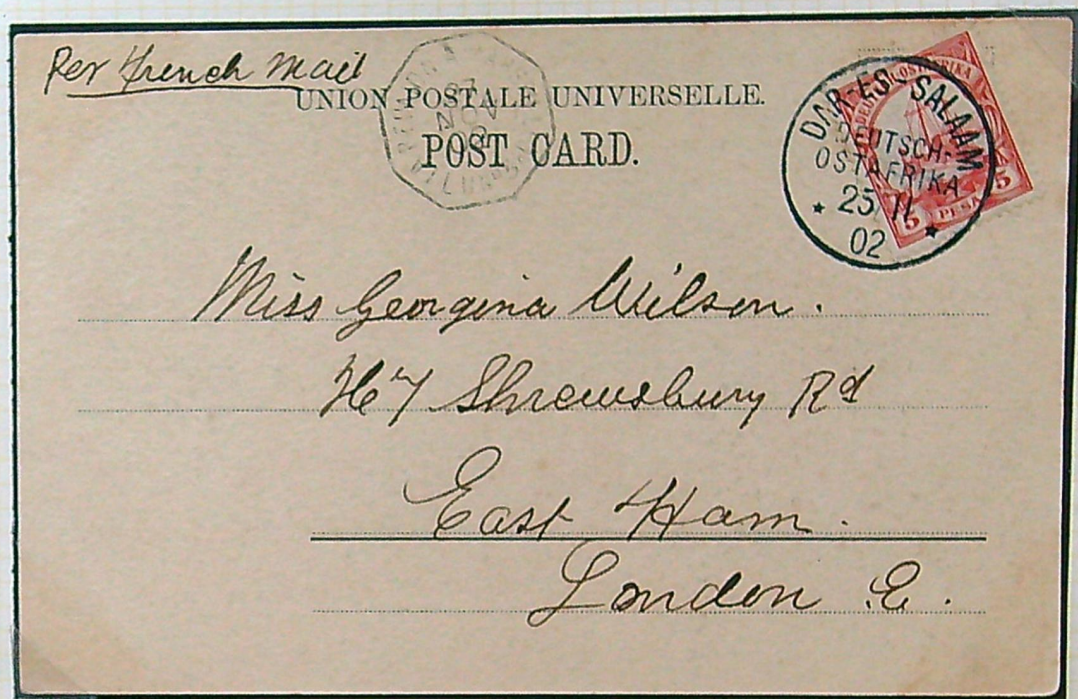 Per French Mail
UNION POSTALE UNIVERSELLE.
POST CARD.
27
NOV
02
DAR-ES-SALAAM
DEUTSCH-
OSTAFRIKA
25/11
02
5 PESA 5
Miss Georgina Wilson.
Shrewsbury Rd
East Ham.
London E.